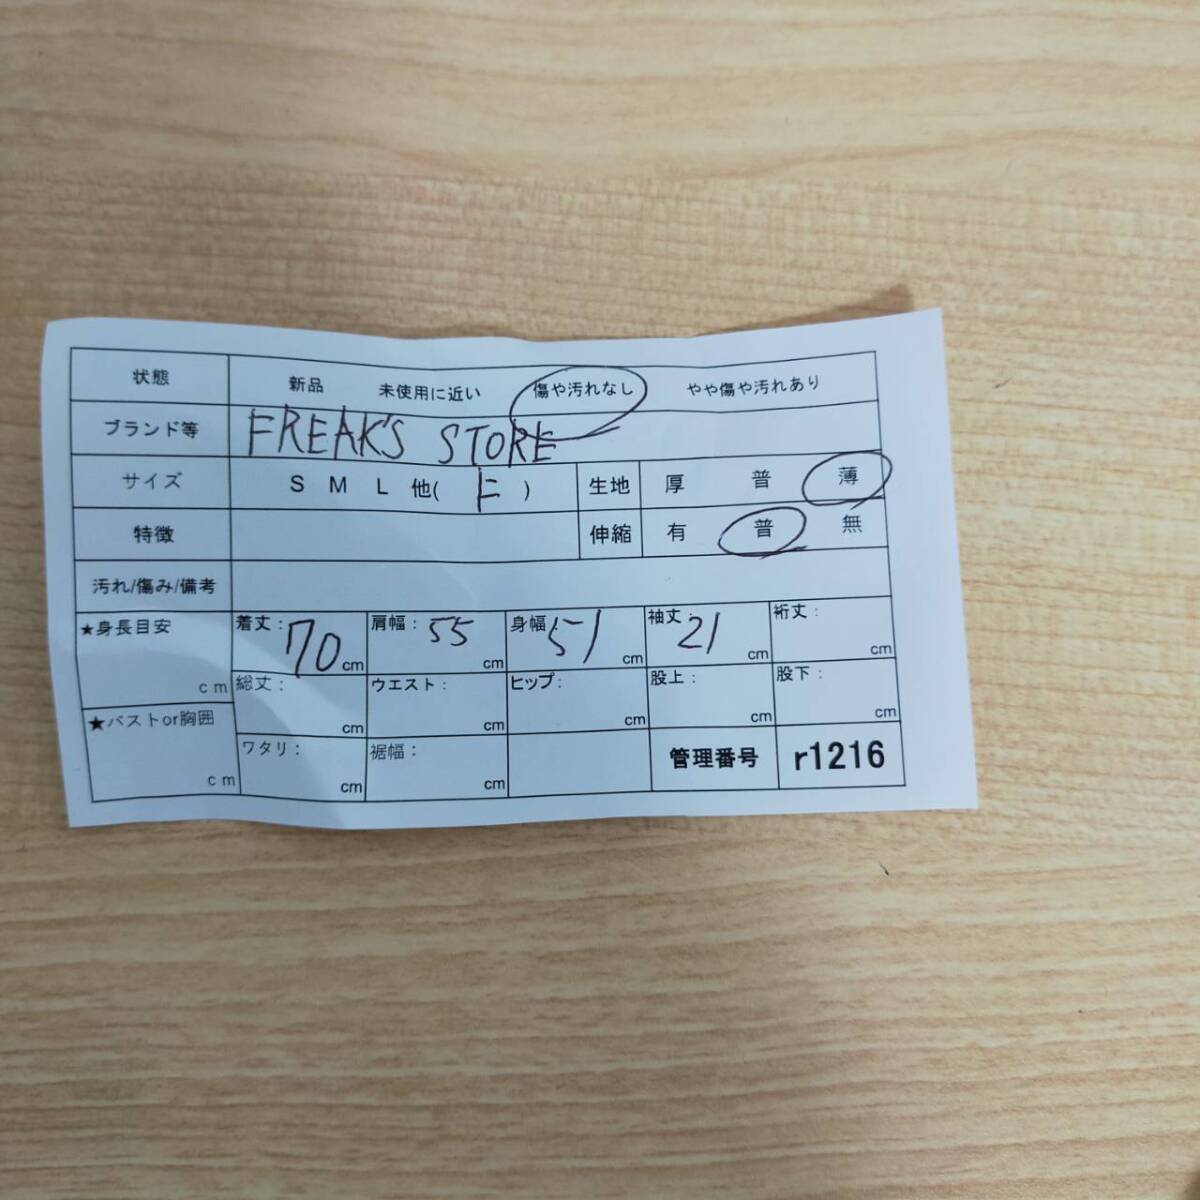 状態 新品 未使用に近い 傷や汚れなし やや傷や汚れあり
ブランド等 FREAK'S STORE
サイズ S M L 他( F ) 生地 厚 普 薄
特徴 伸縮 有 普 無
汚れ/傷み/備考
★身長目安 cm 着丈: 70 cm 肩幅: 55 cm 身幅 51 cm 袖丈: 21 cm 裄丈: cm
総丈: cm ウエスト: cm ヒップ: cm 股上: cm 股下: cm
★バストor胸囲 cm ワタリ: cm 裾幅: cm 管理番号 r1216